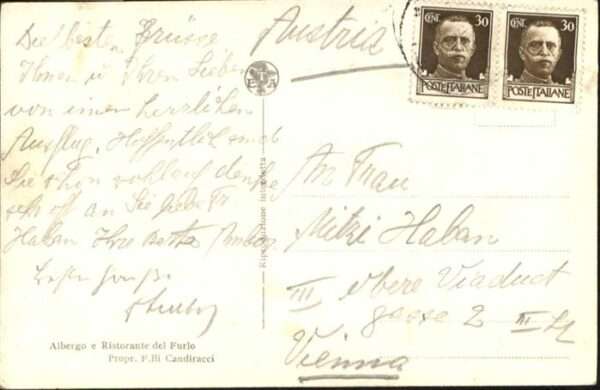 Die besten Grüsse
Ihnen u Ihrem Lieben
von einem herrlichen
Ausflug. Hoffentlich sind
Sie schon wohlauf denke
sehr oft an Sie liebe Fr
Haban Ihre Betty
beste Grüße
Albergo e Ristorante del Furlo
Propr. F.lli Candiracci
Riproduzione interdetta
Austria
CENT. 30
POSTE ITALIANE
CENT. 30
POSTE ITALIANE
An Frau
Mitzi Haban
III Obere Viaduct
gasse 2 III St
Vienna